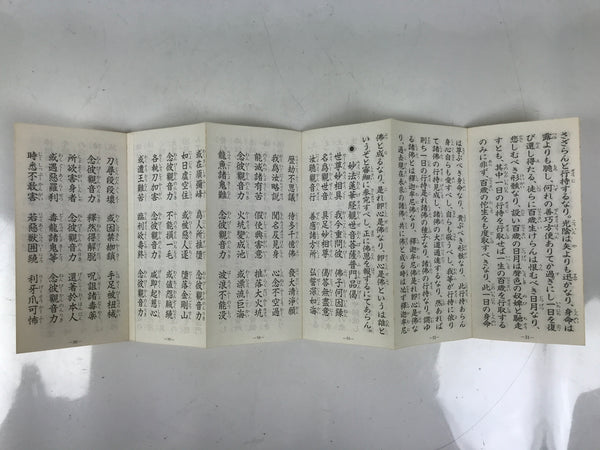 さざらんと行持するなり、光陰は矢よりも迅かなり、身命は
露よりも脆し、何れの善巧方便ありてか過ぎにし一日を復
び還し得たる、徒らに百歳生けらんは恨むべき日月なり、
悲しむべき形骸なり、設い百歳の日月は聲色の奴婢と馳走
すとも、其中一日の行持を行取せば一生の百歳を行取する
のみに非ず、百歳の佗生をも度取すべきなり、此一日の身命
—31—
は尊ぶべき身命なり、貴ぶべき形骸なり、此行持あらん
身心自らも愛すべし、自らも敬うべし、我等が行持に依り
て諸佛の行持見成し、諸佛の大道通達するなり、然あれば
則ち一日の行持是れ諸佛の種子なり、諸佛の行持なり、謂ゆ
る諸佛とは釋迦牟尼佛なり、釋迦牟尼佛是れ即心是佛な
り、過去現在未來の諸佛、共に佛と成る時は必ず釋迦牟尼
—32—
佛と成るなり、是れ即心是佛なり、即心是佛というは誰と
いうぞと審細に參究すべし、正に佛恩を報ずるにてあらん。
● 妙法蓮華經觀世音菩薩普門品偈
世尊妙相具 我今重問彼 佛子何因緣
名爲觀世音 具足妙相尊 偈答無盡意
汝聽觀音行 善應諸方所 弘誓深如海
—33—
歷劫不思議 侍多千億佛 發大清淨願
我爲汝略說 聞名及見身 心念不空過
能滅諸有苦 假使興害意 推落大火坑
念彼觀音力 火坑變成池 或漂流巨海
龍魚諸鬼難 念彼觀音力 波浪不能沒
—34—
或在須彌峰 爲人所推墮 念彼觀音力
如日虛空住 或被惡人逐 墮落金剛山
念彼觀音力 不能損一毛 或値怨賊繞
各執刀加害 念彼觀音力 咸即起慈心
或遭王難苦 臨刑欲壽終 念彼觀音力
—35—
刀尋段段壞 或囚禁枷鎖 手足被杻械
念彼觀音力 釋然得解脫 呪詛諸毒藥
所欲害身者 念彼觀音力 還著於本人
或遇惡羅刹 毒龍諸鬼等 念彼觀音力
時悉不敢害 若惡獸圍繞 利牙爪可怖
—36—